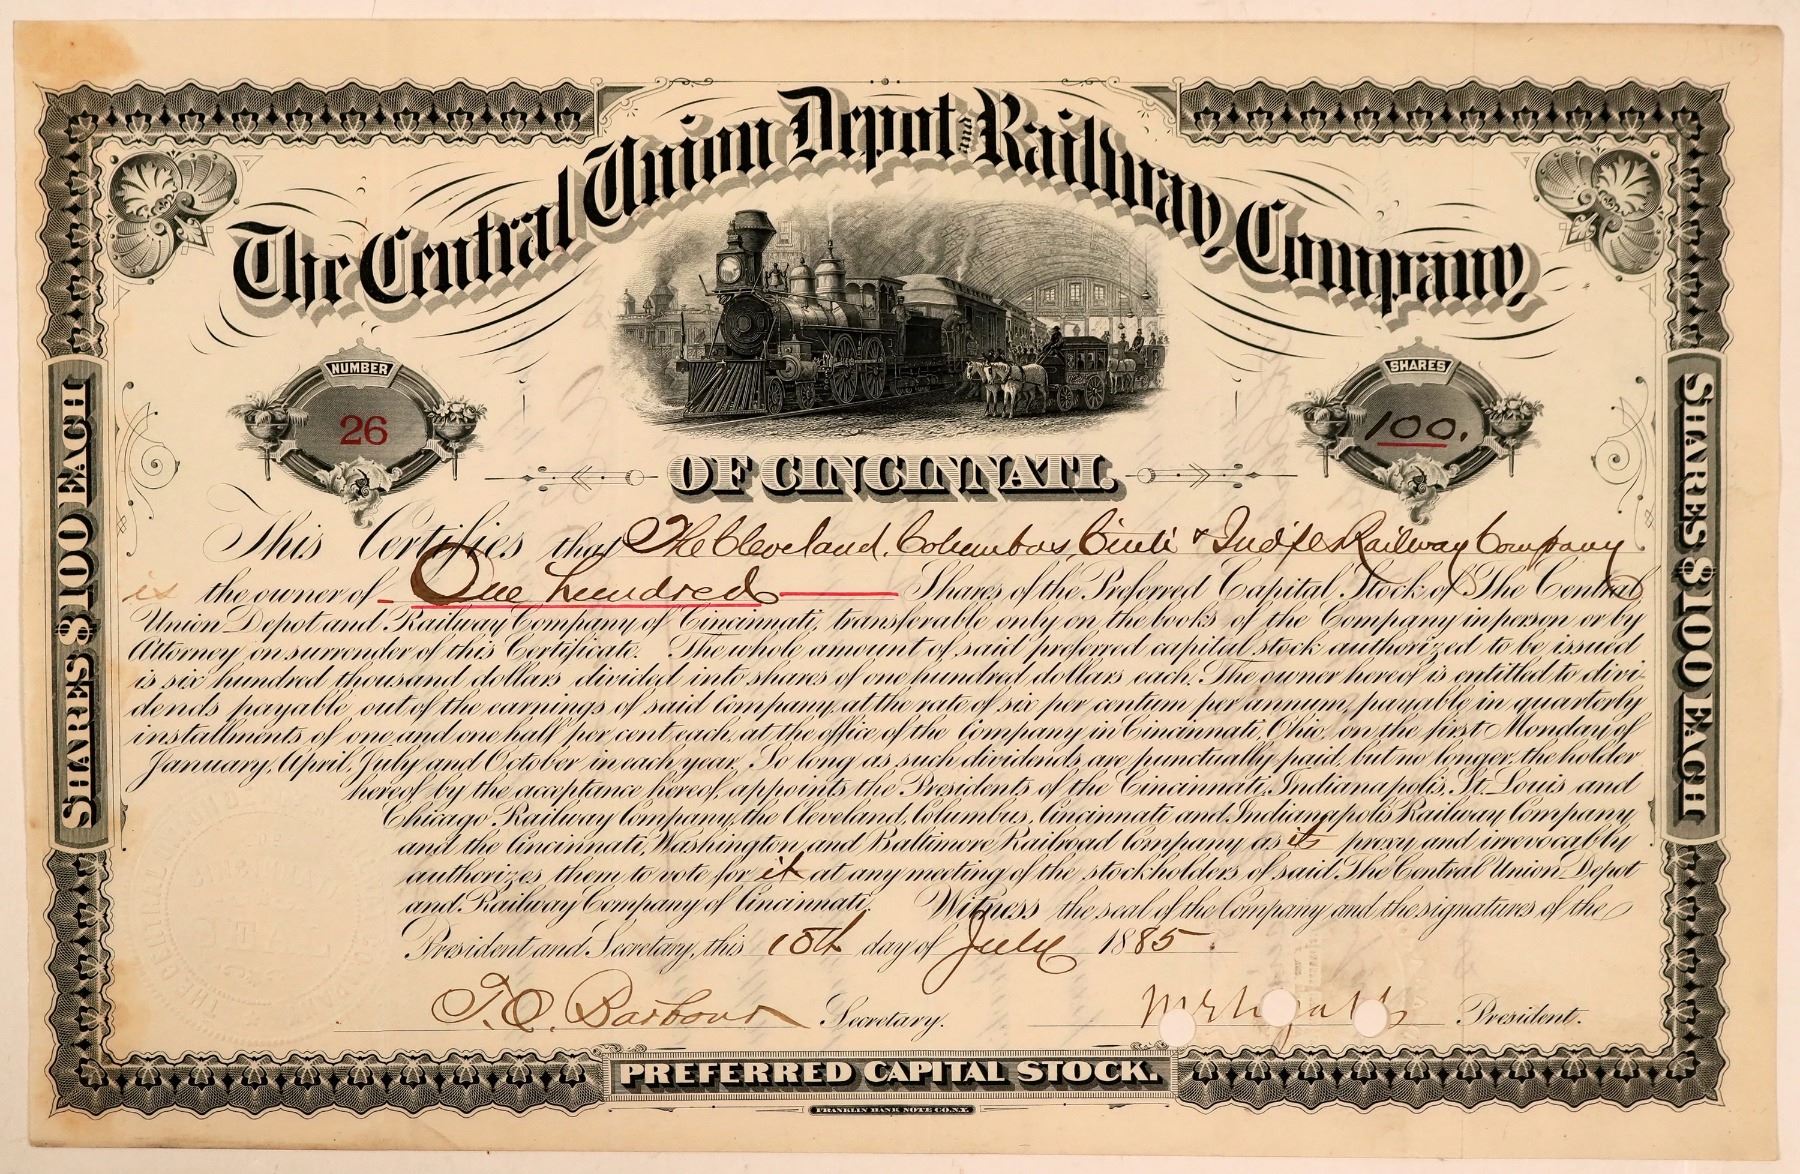 The Central Union Depot and Railway Company
NUMBER
26
SHARES
100.
OF CINCINNATI.
SHARES $100 EACH
SHARES $100 EACH
This Certifies that The Cleveland, Columbus, Cinti & Ind'pls Railway Company
is the owner of One hundred Shares of the Preferred Capital Stock of The Central
Union Depot and Railway Company of Cincinnati, transferable only on the books of the Company in person or by
Attorney on surrender of this Certificate. The whole amount of said preferred capital stock authorized to be issued
is six hundred thousand dollars divided into shares of one hundred dollars each. The owner hereof is entitled to divi-
dends payable out of the earnings of said Company, at the rate of six per centum per annum, payable in quarterly
installments of one and one half per cent each, at the office of the Company in Cincinnati, Ohio, on the first Monday of
January, April, July and October in each year. So long as such dividends are punctually paid, but no longer, the holder
hereof by the acceptance hereof, appoints the Presidents of the Cincinnati, Indianapolis, St. Louis and
Chicago Railway Company, the Cleveland, Columbus, Cincinnati and Indianapolis Railway Company
and the Cincinnati, Washington and Baltimore Railroad Company as its proxy and irrevocably
authorizes them to vote for it at any meeting of the stockholders of said The Central Union Depot
and Railway Company of Cincinnati. Witness the seal of the Company and the signatures of the
President and Secretary, this 10th day of July 1885.
Barbour Secretary.
President.
PREFERRED CAPITAL STOCK.
FRANKLIN BANK NOTE CO. N.Y.